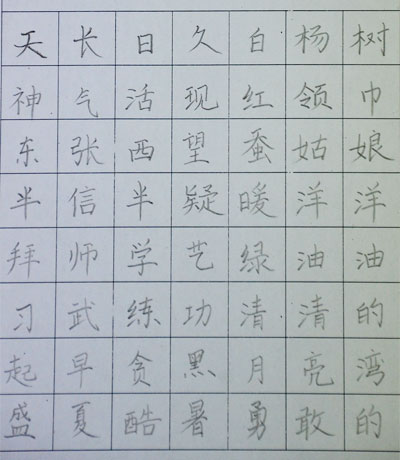 天长日久白杨树
神气活现红领巾
东张西望蚕姑娘
半信半疑暖洋洋
拜师学艺绿油油
习武练功清清的
起早贪黑月亮湾
盛夏酷暑勇敢的